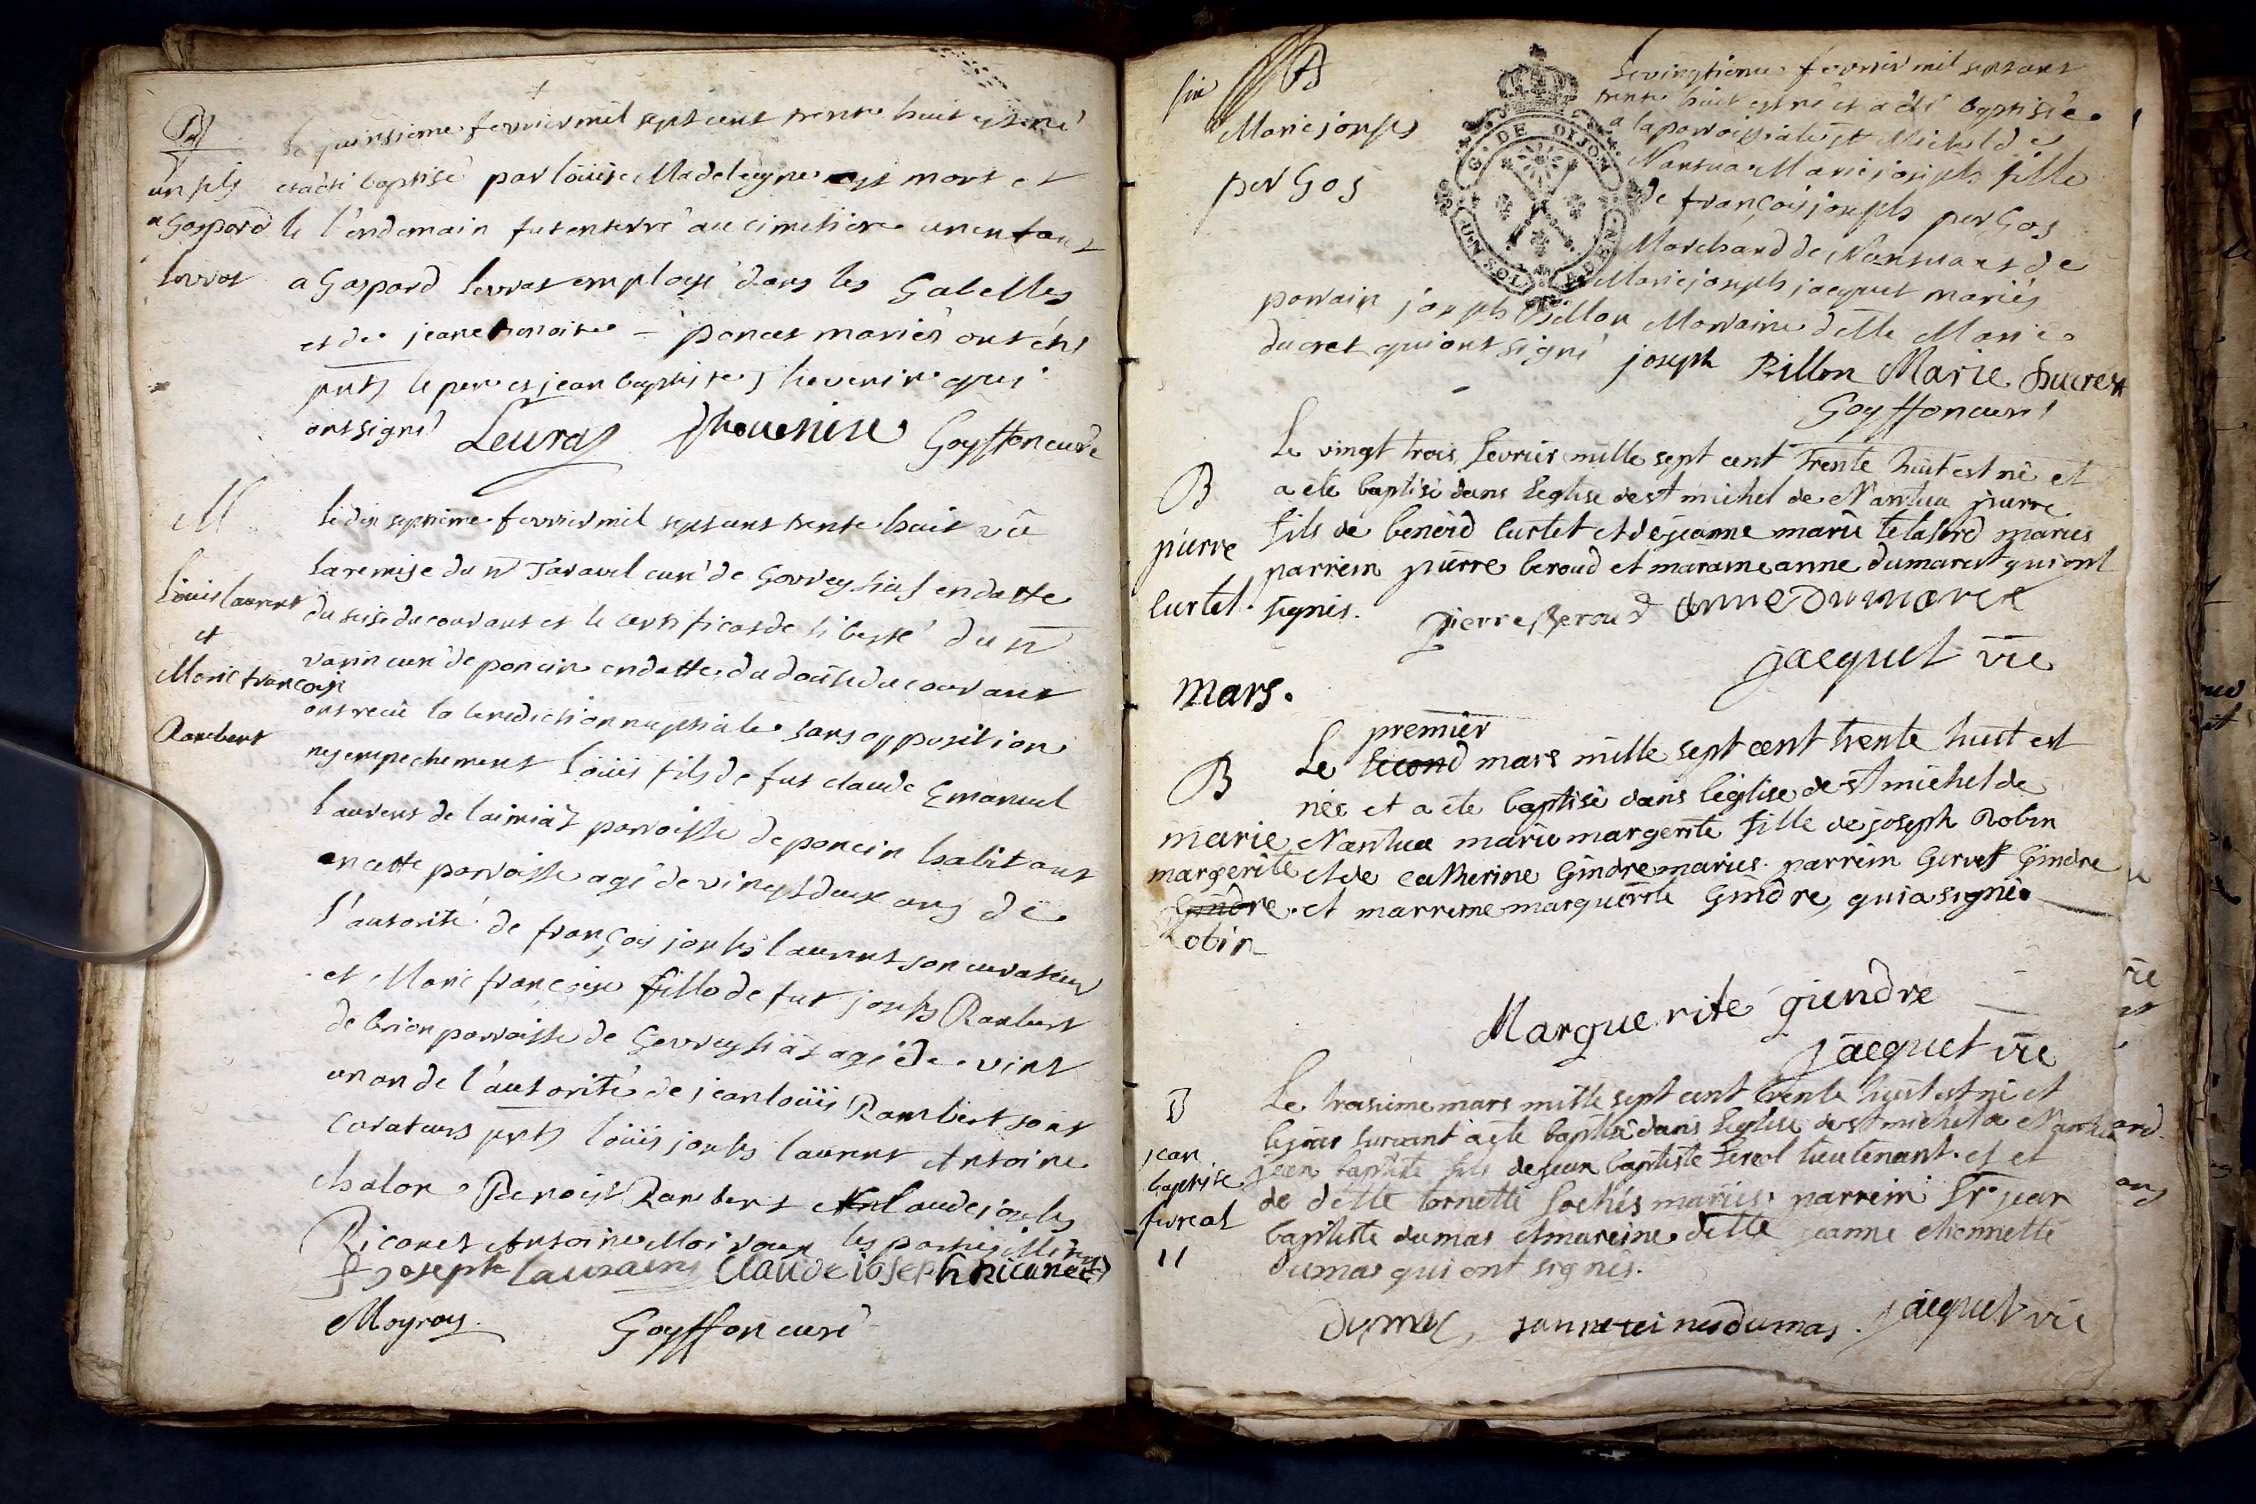 un fils
a Gaspard
Levrat
Le quinsieme fevrier mil sept cent trente huit est né
et a été baptisé par Loüise Madeleyne est mort et
le l'endemain fut enterré au cimetiere un enfant
a Gaspard Levrat employé dans les Gabelles
et de jeane benoite - poncet mariés ont été
pnts le pere et jean baptiste Thevenin qui
ont signé Levras Thevenin Goyffon curé
M
Loüis laurent
et
Marie françoise
Rambert
Le dix septieme fevrier mil sept cent trente huit vû
la remise du Sr Taravel curé de Gevreysiat en datte
du seise du courant et le certificat de liberté du Sr
varin curé de poncin en datte du doûse du courant
ont reçû la benediction nuptiale sans opposition
ny empechement Loüis fils de fut claude Emanuel
Laurent de laimiat parroisse de poncin habitant
en cette parroisse agé de vingt deux ans de
l'autorité de françois joseph laurent son curateur
et Marie françoise fille de fut joseph Rambert
de brion parroisse de Gevreysiat agé de vint
un an de l'autorité de jean loüis Rambert sont
curateurs pnts loüis joseph laurent Antoine
chalon Benoist Rambert Claude joseph
Ricanet Antoine Moiroux les parties
joseph Laurain Claude ioseph Ricanet
Moyroy. Goyffon curé
B
Marie joseph
perGos
Le vingtieme fevrier mil sept cent
trente huit est né et a été baptisée
a la parroissiale St Michel de
Nantua Marie joseph fille
de françois joseph perGos
Marchand de Nantua et de
Marie joseph jacquet mariés
parrain joseph Rillon Marraine dlle Marie
ducret qui ont signé joseph Rillon Marie Ducret
Goyffon curé
G. DE DIJON
B
pierre
Curtet.
Le vingt trois fevrier mille sept cent trente huit est né et
a été baptisé dans l'eglise de st michel de Nantua pierre
fils de benoid Curtet et de jeanne marie mariés
parrein pierre beroud et maraine anne dumarest qui ont
signés.
pierre Beroud anne Dumarest
jacquet vic
Mars.
B
marie
margerite
Gindre
Robin
premier
Le second mars mille sept cent trente huit est
née et a été baptisé dans l'église de st michel de
Nantua marie margerite fille de joseph Robin
et de catherine Gindre mariés. parrein Gervet Gindre
et marrene marguerite Gindre, qui a signé.
Marguerite giendre
jacquet vic
B
jean
baptiste
fereol
11
Le troisieme mars mille sept cent trente huit est né et
le jour suivant a été baptisé dans l'eglise de st michel de Nantua
jean baptiste fils de jean baptiste fereol lieutenant
de dlle mariés. parrein Sr jean
baptiste dumas et mareine dlle jeanne
dumas qui ont signés.
Dumas, dumas. jacquet vic